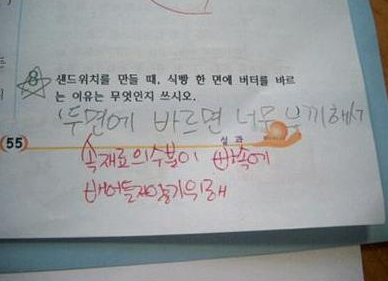 8 샌드위치를 만들 때, 식빵 한 면에 버터를 바르
는 이유는 무엇인지 쓰시오.
두면에 바르면 너무 느끼해서
55
실과
속재료의 수분이 빵속에
배어들지않기위해